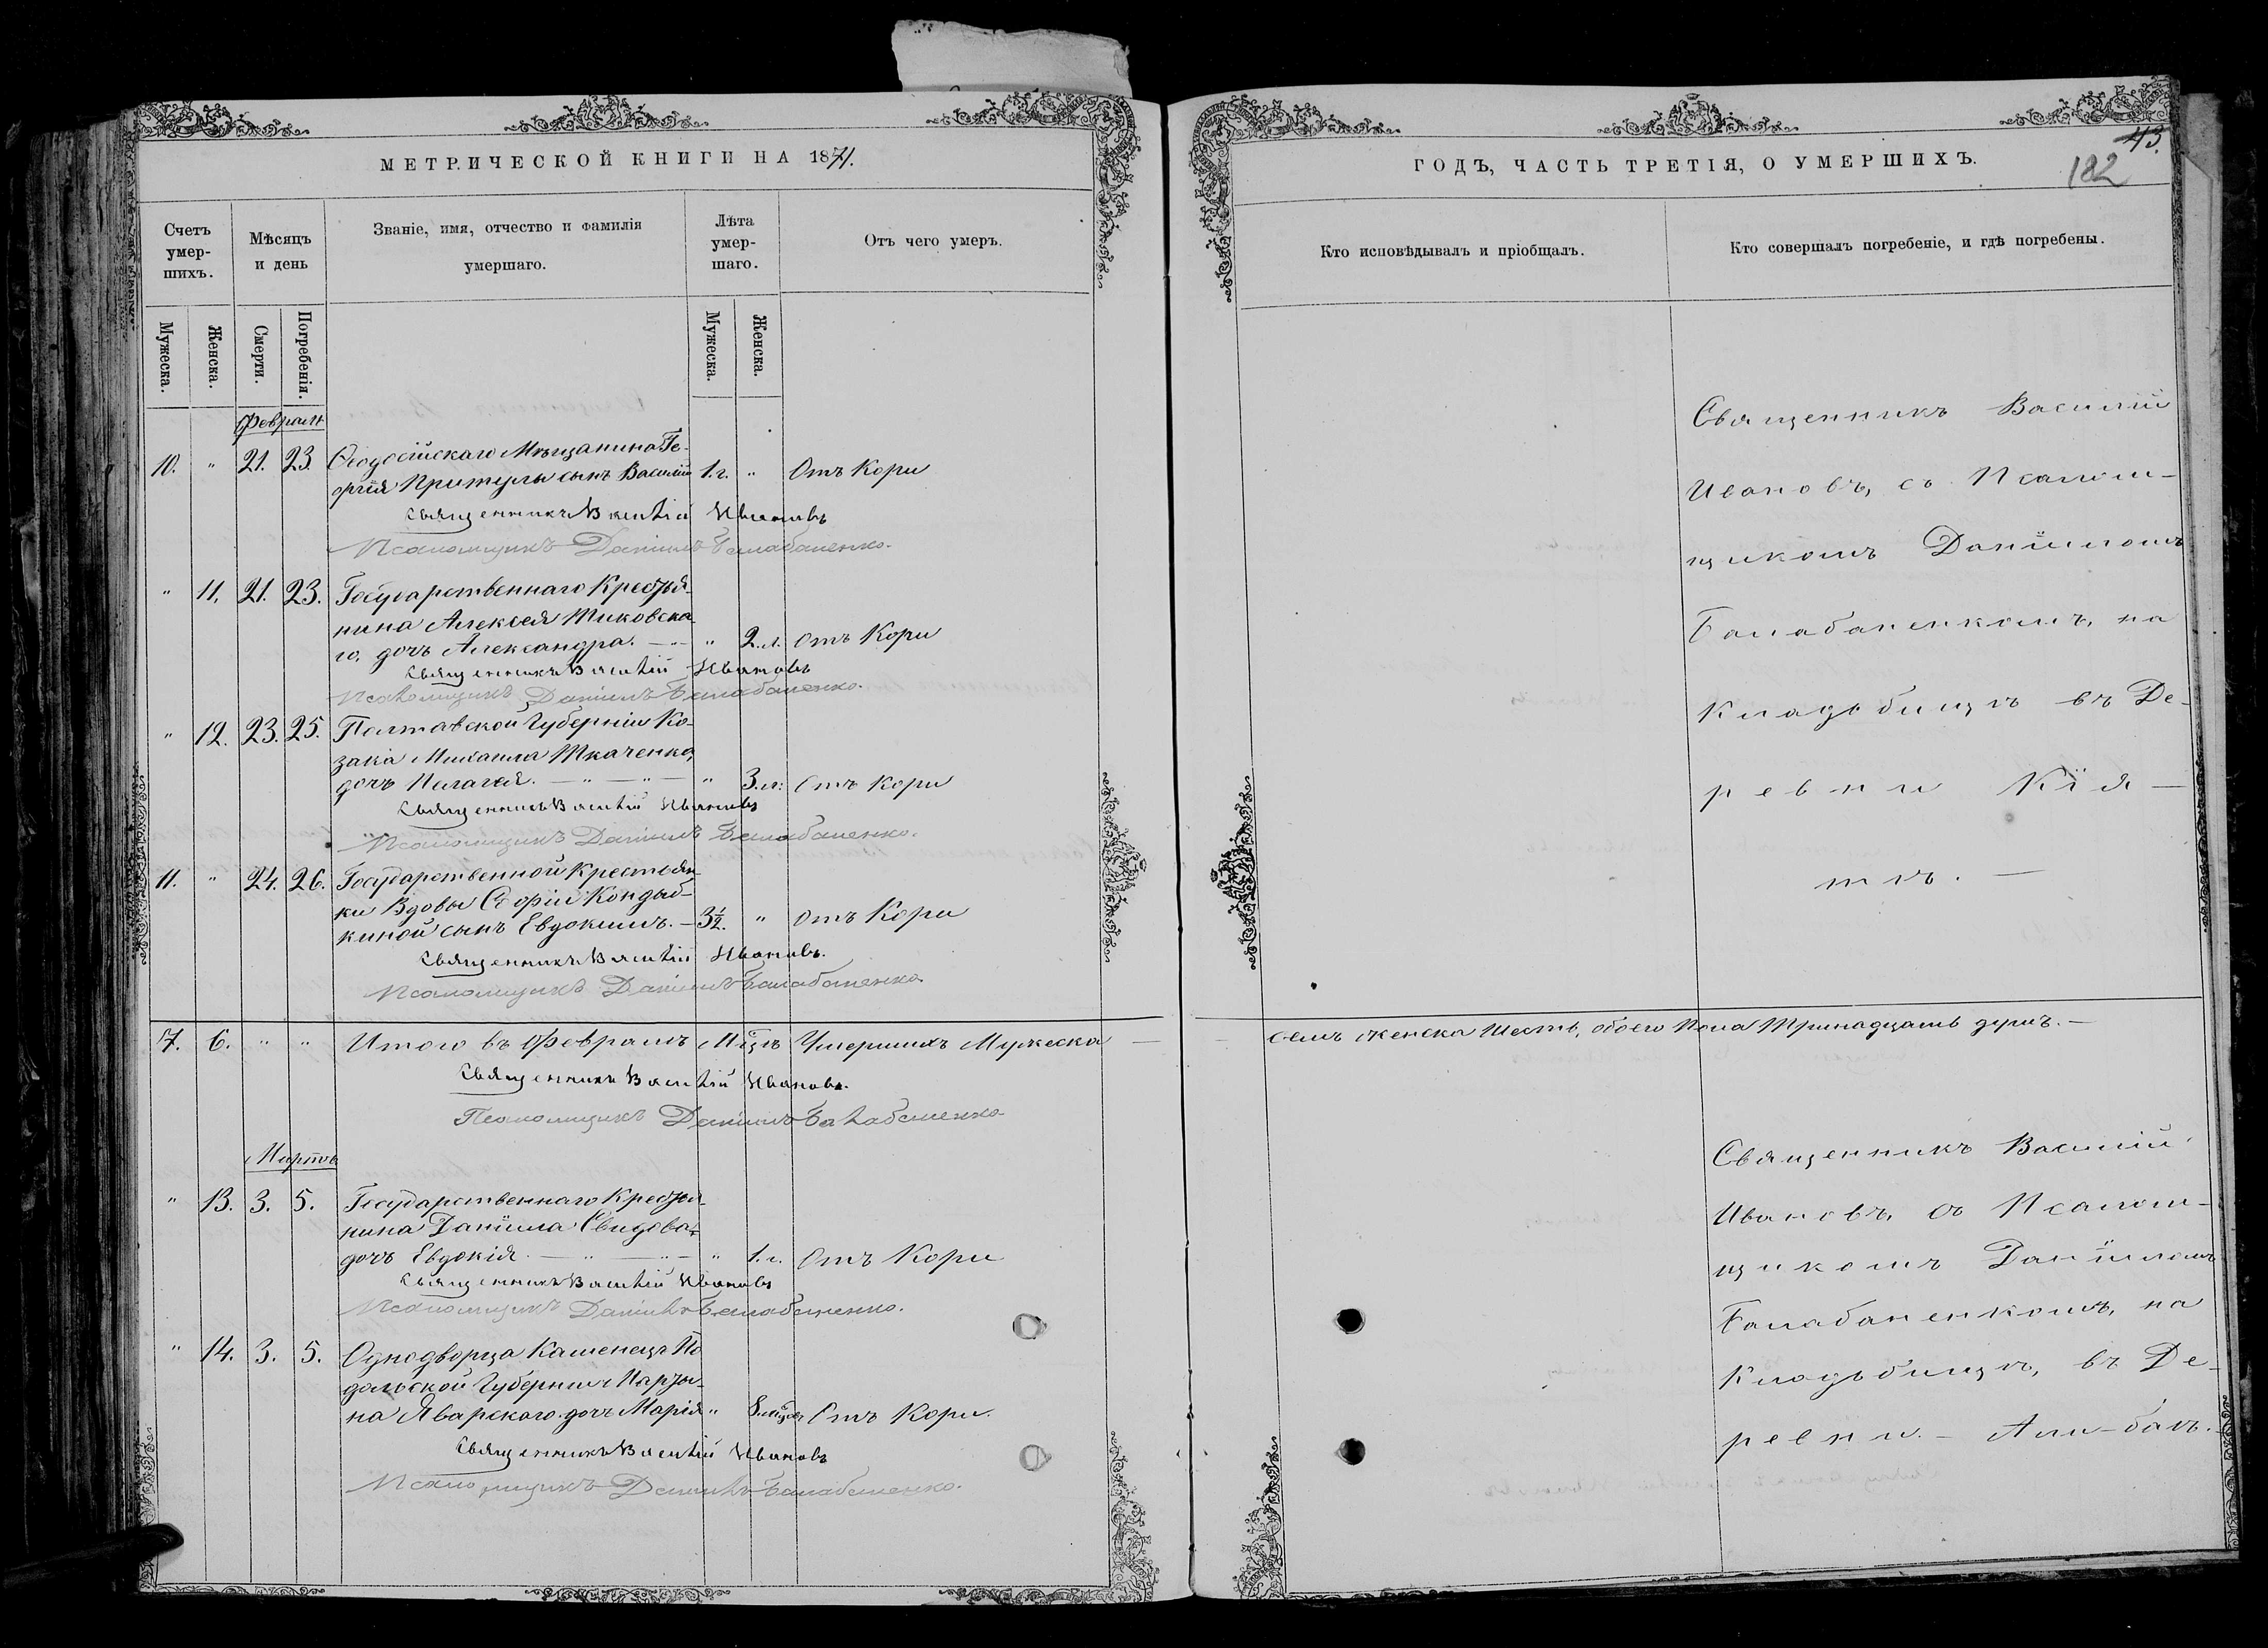 МЕТРИЧЕСКОЙ КНИГИ НА 1871.
Счетъ умер-шихъ.
Мѣсяцъ и день
Званіе, имя, отчество и фамилія умершаго.
Лѣта умер-шаго.
Отъ чего умеръ.
Мужеска.
Женска.
Смерти.
Погребенія.
Мужеска.
Женска.
Февраля
10. " 21. 23. Ѳеодосійскаго Мѣщанина Ге-
оргія Притулы сынъ Василій 1.г. " Отъ Кори
Священникъ Василій Ивановъ
Псаломщикъ Даніилъ Балабаненко.
" 11. 21. 23. Государственнаго Крестья-
нина Алексея Тиковска
го, дочь Александра. — " — " 2.л. Отъ Кори
Священникъ Василій Ивановъ
Псаломщикъ Даніилъ Балабаненко.
" 12. 23. 25. Полтавской Губерніи Ко-
зака Михаила Ткаченко,
дочь Пелагея. — " — " — " 3.л. Отъ Кори
Священникъ Василій Ивановъ
Псаломщикъ Даніилъ Балабаненко.
11. " 24. 26. Государственной Крестьян-
ки Вдовы Софіи Кондыб-
киной сынъ Евдокимъ. — 3½. " Отъ Кори
Священникъ Василій Ивановъ.
Псаломщикъ Даніилъ Балабаненко.
7. 6. " " Итого въ Февралѣ М-цѣ Умершихъ Мужеска —
Священникъ Василій Ивановъ.
Псаломщикъ Даніилъ Балабаненко
Мартъ
" 13. 3. 5. Государственнаго Крестья-
нина Даніила Свидова,
дочь Евдокія. — " — " — " 1.г. Отъ Кори
Священникъ Василій Ивановъ
Псаломщикъ Даніилъ Балабаненко.
" 14. 3. 5. Однодворца Каменецъ По
дольской Губерніи
на Яварскаго дочь Марія " 8. Отъ Кори.
Священникъ Василій Ивановъ
Псаломщикъ Даніилъ Балабаненко.
43.
182
ГОДЪ, ЧАСТЬ ТРЕТІЯ, О УМЕРШИХЪ.
Кто исповѣдывалъ и пріобщалъ.
Кто совершалъ погребеніе, и гдѣ погребены.
Священникъ Василій
Ивановъ, съ Псалом-
щикомъ Даніиломъ
Балабаненкомъ, на
Кладьбищѣ въ Де-
ревни Кія —
тѣ. —
семь женска Шесть, обоего Пола Тринадцать душъ. —
Священникъ Василій
Ивановъ, съ Псалом-
щикомъ Даніиломъ
Балабаненкомъ, на
Кладьбищѣ, въ Де-
ревни. — Али-бай.